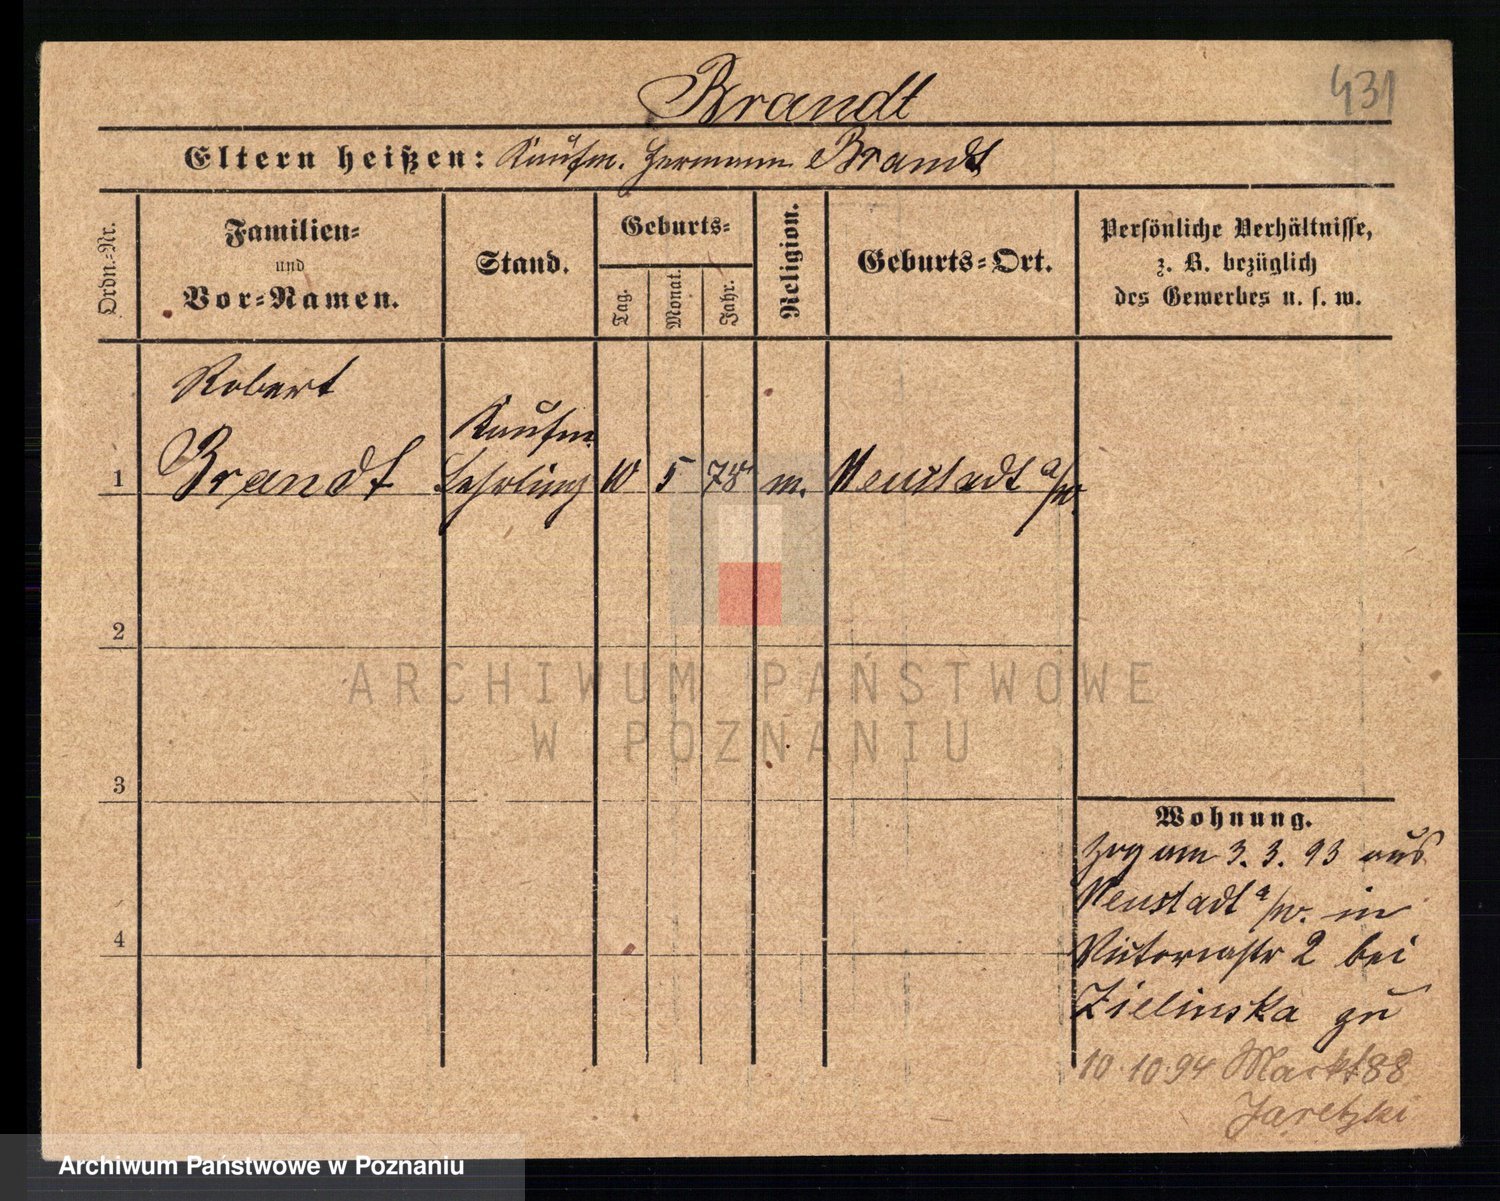 Brandt
431
Eltern heißen: Kaufm. Hermann Brandt
Ordn.-Nr.
Familien-
und
Vor-Namen.
Stand.
Geburts-
Tag.
Monat.
Jahr.
Religion.
Geburts-Ort.
Persönliche Verhältnisse,
z. B. bezüglich
des Gewerbes u. s. w.
Robert
Kaufm.
1 Brandt Lehrling 10 5 78 m. Neustadt a/w.
2
ARCHIWUM PAŃSTWOWE
W POZNANIU
3
Wohnung.
Zog am 3. 3. 93 aus
Neustadt a/w. in
4
Victoriastr 2 bei
Zielinska zu
10 10 94 Markt 88
Jaretzki
Archiwum Państwowe w Poznaniu